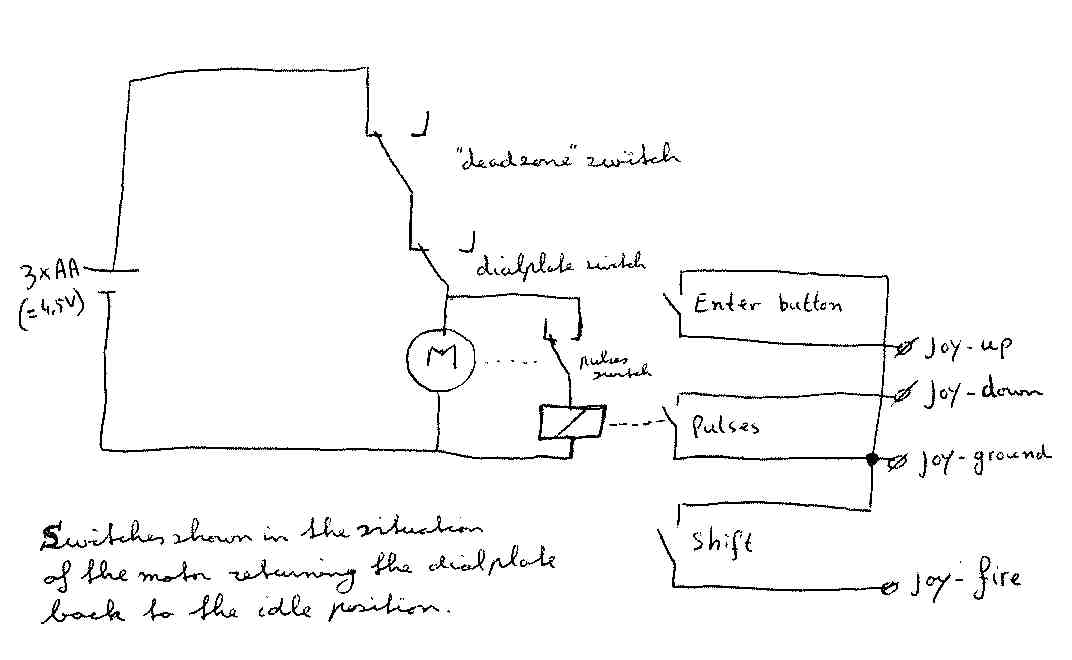 "deadzone" switch
dialplate switch
3xAA
(=4,5V)
Enter button
M
pulses
switch
Joy-up
Joy-down
Pulses
Joy-ground
Shift
Joy-fire
Switches shown in the situation
of the motor returning the dialplate
back to the idle position.